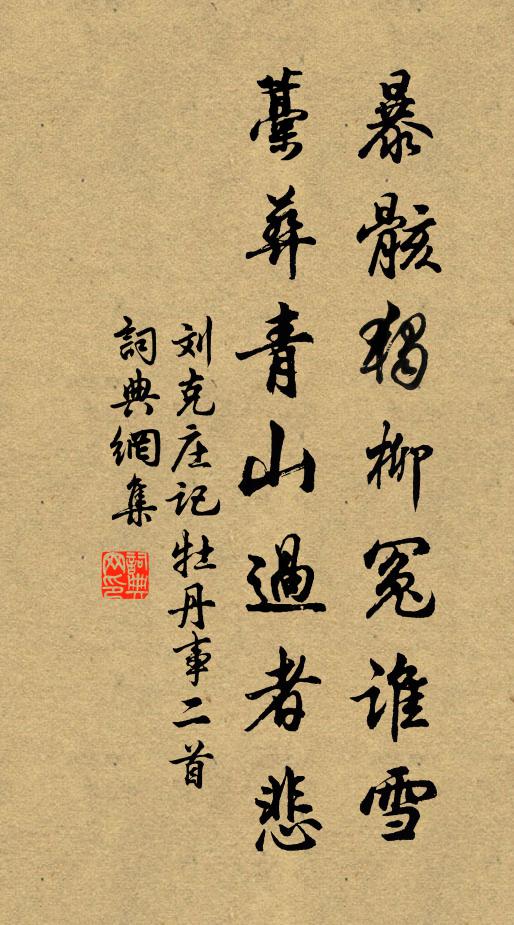 暴骸獨柳冤誰雪
藁葬青山過者悲
刘克庄记牡丹事二首
詞典網集
詞典
网印